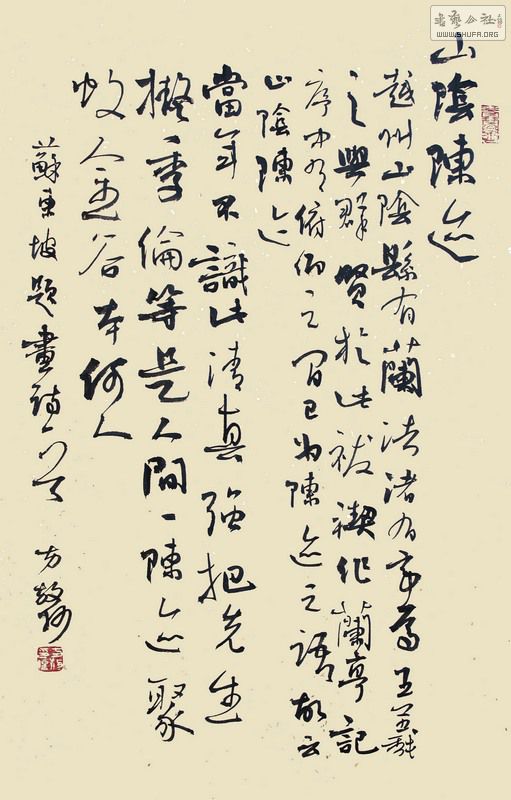 书艺公社
WWW.SHUFA.ORG
山陰陳迹
越州山陰縣有蘭渚渚有亭焉王羲
之與群賢於此祓禊作蘭亭記
序中有俯仰之間已為陳迹之語故云
山陰陳迹
當年不識此清真強把先生
擬季倫等是人間一陳迹聚
蚊金谷本何人
蘇東坡題畫詩一首 方